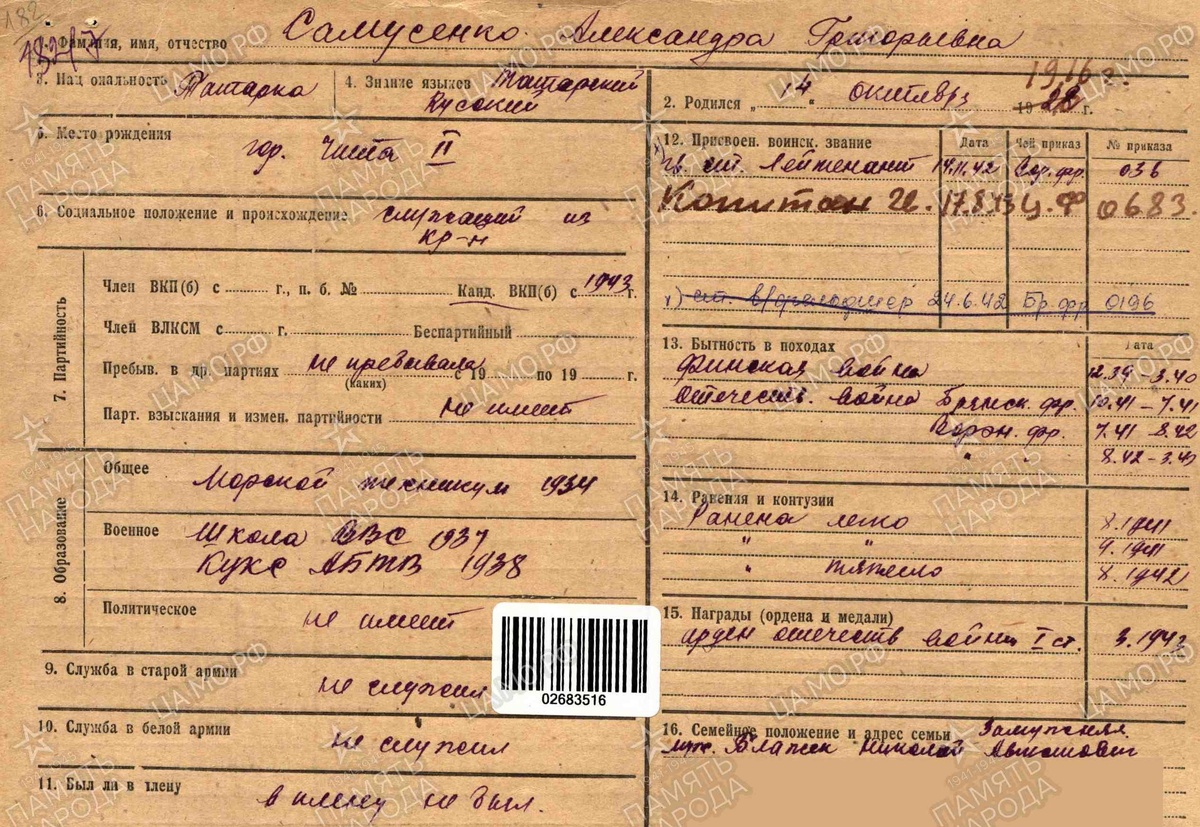 182
182/7
1. Фамилия, имя, отчество Самусенко Александра Григорьевна
3. Национальность Татарка
4. Знание языков Татарский
Русский
5. Место рождения
гор. Чита II
6. Социальное положение и происхождение служащий из
кр-н
7. Партийность
Член ВКП(б) с г., п. б. № Канд. ВКП(б) с 1943 г.
Член ВЛКСМ с г. Беспартийный
Пребыв. в др. партиях не пребывала с 19 по 19 г.
(каких)
Парт. взыскания и измен. партийности не имеет
8. Образование
Общее
Морской техникум 1934
Военное
Школа ВВС 1937
Кукс АБТВ 1938
Политическое
не имеет
9. Служба в старой армии
не служил
10. Служба в белой армии
не служил
11. Был ли в плену
в плену не был.
02683516
1916 г.
2. Родился „ 14 “ октября 19 г.
12. Присвоен. воинск. звание Дата Чей приказ № приказа
х) гв. ст. лейтенант 14.11.42 036
Копитан гв. 17.8.43 Ц.Ф 0683.
х) ст. в/фельдшер 24.6.42 Бр.фр 0196
13. Бытность в походах Дата
Финская война 12.39 - 3.40
Отечеств. война Брянск. фр. 10.41 - 7.41
Ворон. фр. 7.41 - 8.42
" " 8.42 - 3.43
14. Ранения и контузии
Ранена легко 8.1941
" " 9.1941
" тяжело 8.1942
15. Награды (ордена и медали)
орден отечеств войны I ст. 3.1943
16. Семейное положение и адрес семьи Замужняя.
муж. Николай
ЦАМО.РФ
ПАМЯТЬ
НАРОДА
1941-1945